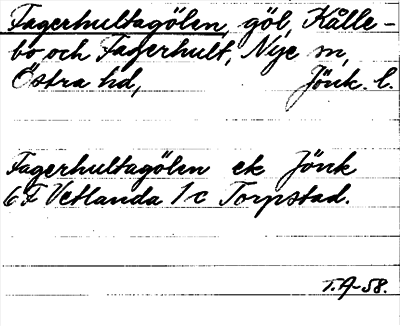 Fagerhultagölen, göl, Kålle-
bo och Fagerhult, Nye sn,
Östra hd, Jönk. l.
Fagerhultagölen ek Jönk
6F Vetlanda 1c Torpstad.
T.A-58.